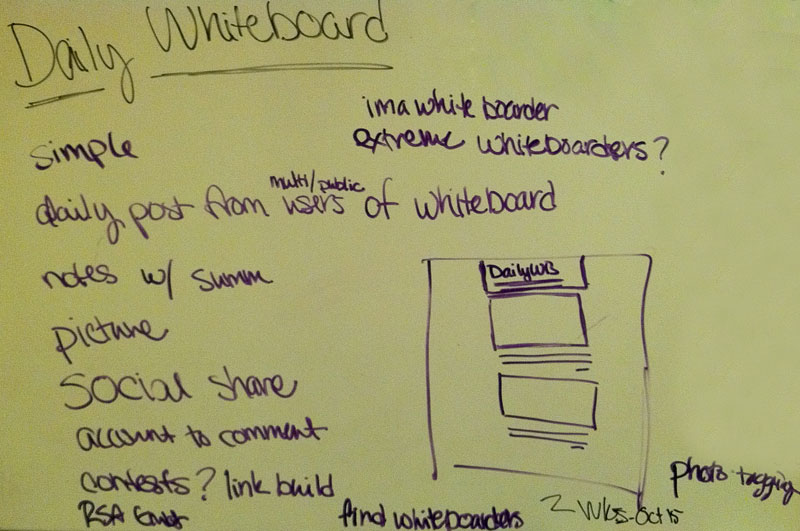 Daily Whiteboard
ima white boarder
extreme whiteboarders?
simple
daily post from users of whiteboard
multi/public
notes w/ summ
DailyWB
picture
social share
account to comment
contests? link build
photo tagging
RSA
find whiteboarders
2 wks - Oct 15